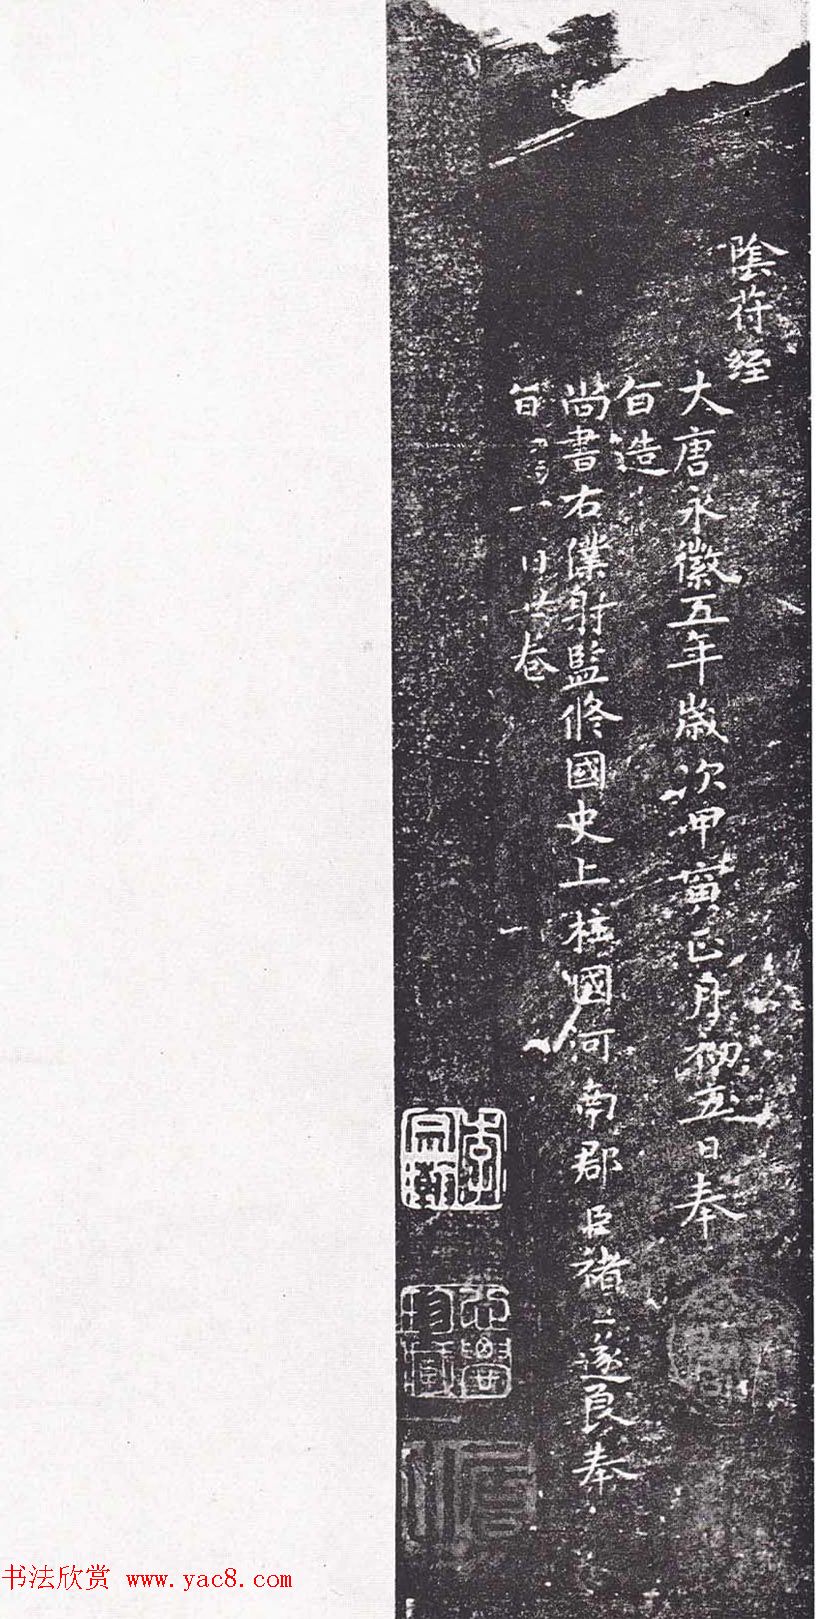 陰符經
大唐永徽五年歲次甲寅正月初五日奉
旨造
尚書右僕射監修國史上柱國河南郡臣褚遂良奉
旨寫一百廿卷
书法欣赏 www.yac8.com